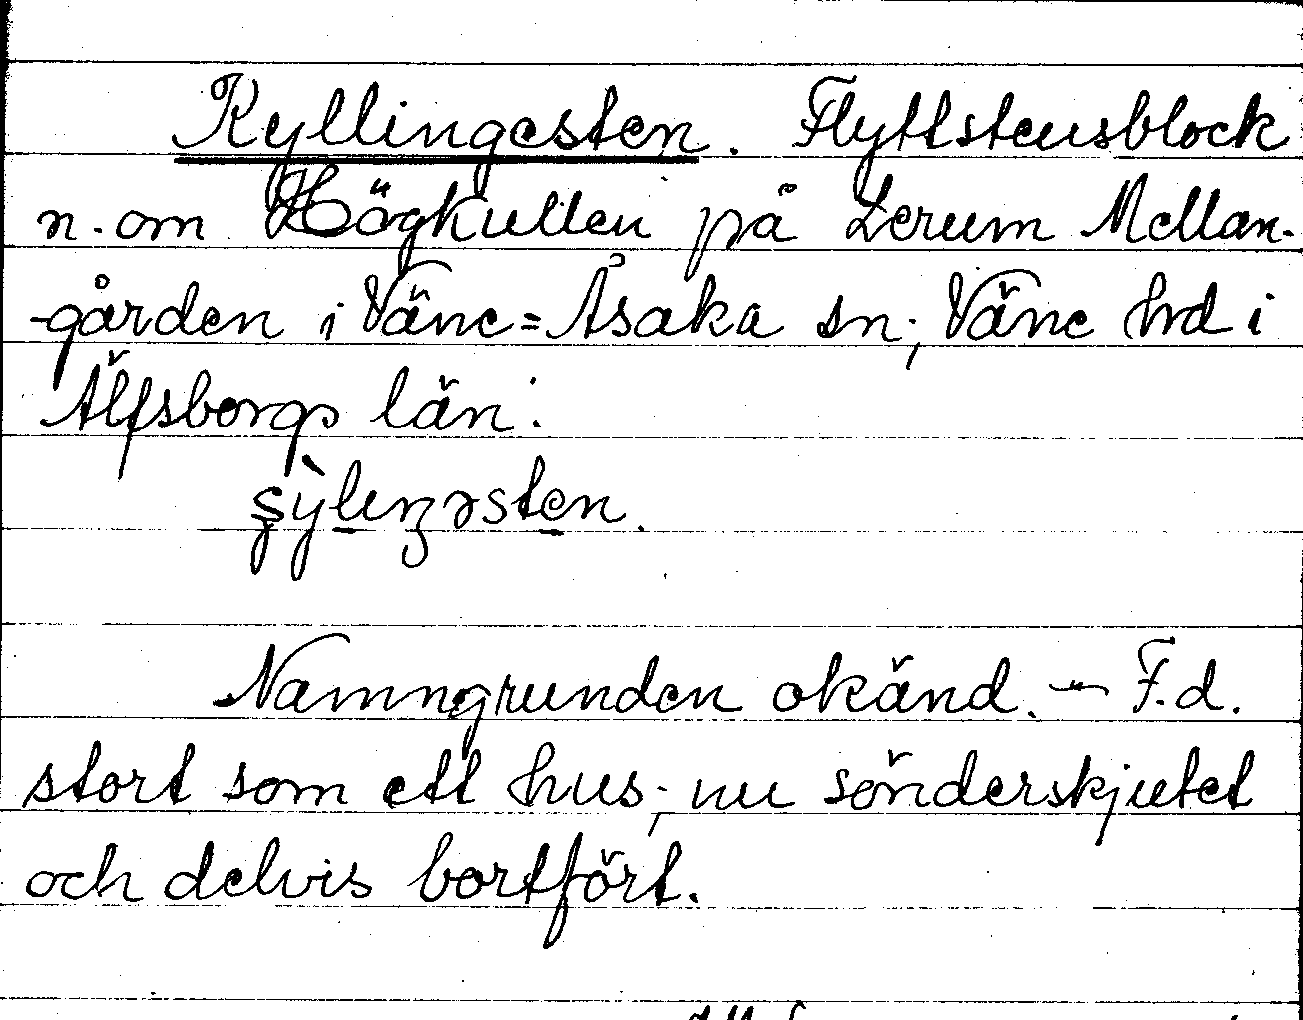 Kyllingesten. Flyttstensblock
n. om Högkullen på Lerum Mellan-
-gården i Väne=Åsaka sn; Väne hrd i
Älfsborgs län.
Namngrunden okänd. — F.d.
stort som ett hus; nu sönderskjutet
och delvis bortfört.